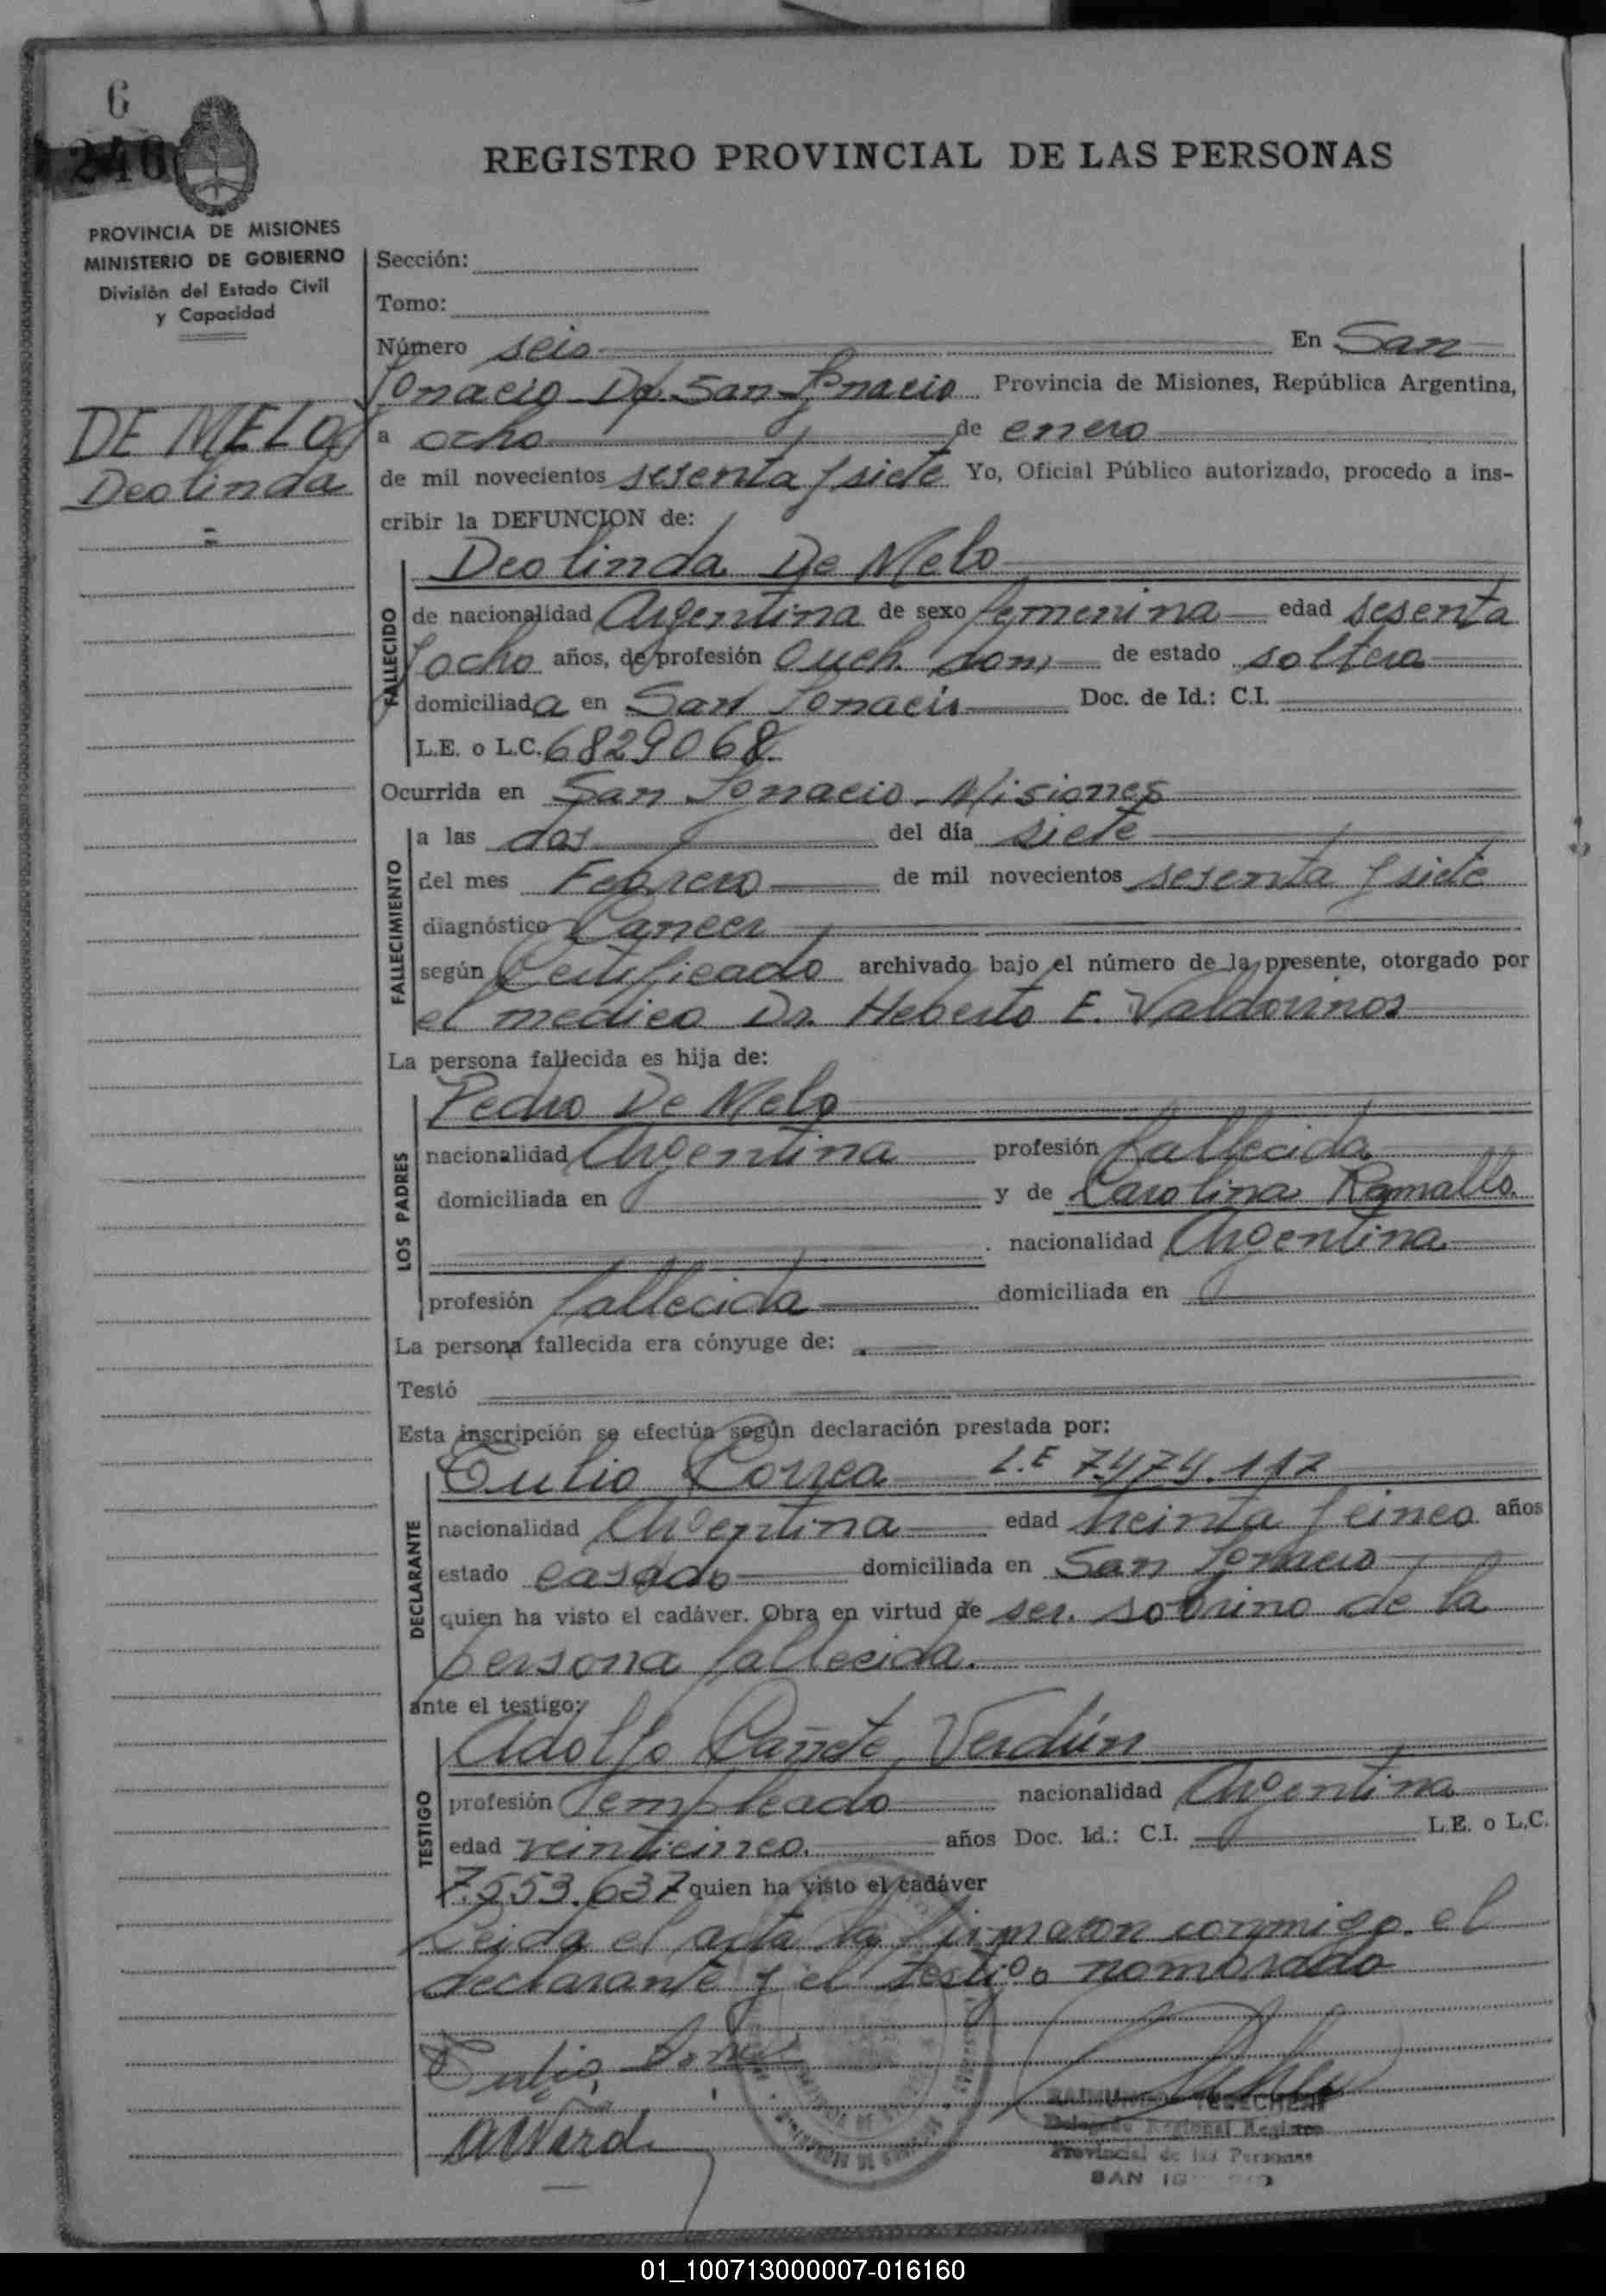 6
246
REGISTRO PROVINCIAL DE LAS PERSONAS
PROVINCIA DE MISIONES
MINISTERIO DE GOBIERNO
División del Estado Civil
y Capacidad
DE MELO
Deolinda
Sección:
Tomo:
Número seis En San
Ignacio Dp. San Ignacio Provincia de Misiones, República Argentina,
a ocho de enero
de mil novecientos sesenta y siete Yo, Oficial Público autorizado, procedo a ins-
cribir la DEFUNCION de:
Deolinda De Melo
FALLECIDO
de nacionalidad Argentina de sexo femenina edad sesenta
y ocho años, de profesión Queh. dom. de estado soltera
domiciliada en San Ignacio Doc. de Id.: C.I.
L.E. o L.C. 6829068.
Ocurrida en San Ignacio - Misiones
FALLECIMIENTO
a las dos del día siete
del mes Febrero de mil novecientos sesenta y siete
diagnóstico Cancer
según Certificado archivado bajo el número de la presente, otorgado por
el medico Dr. Heberto E. Valdovinos
La persona fallecida es hija de:
Pedro De Melo
LOS PADRES
nacionalidad Argentina profesión fallecida
domiciliada en y de Carolina Ramallo
nacionalidad Argentina
profesión fallecida domiciliada en
La persona fallecida era cónyuge de:
Testó
Esta inscripción se efectúa según declaración prestada por:
Tulio Correa L.E 7.474.117
DECLARANTE
nacionalidad Argentina edad treinta y cinco años
estado casado domiciliada en San Ignacio
quien ha visto el cadáver. Obra en virtud de ser. sobrino de la
persona fallecida.
ante el testigo:
Adolfo Cañete Verdún
TESTIGO
profesión empleado nacionalidad Argentina
edad veinticinco. años Doc. Id.: C.I. L.E. o L.C.
7.553.637 quien ha visto el cadáver
Leida el acta la firmaron conmigo. el
declarante y el testigo nombrado
Tulio
Delegado Regional Registro
Provincial de las Personas
SAN
01_100713000007-016160